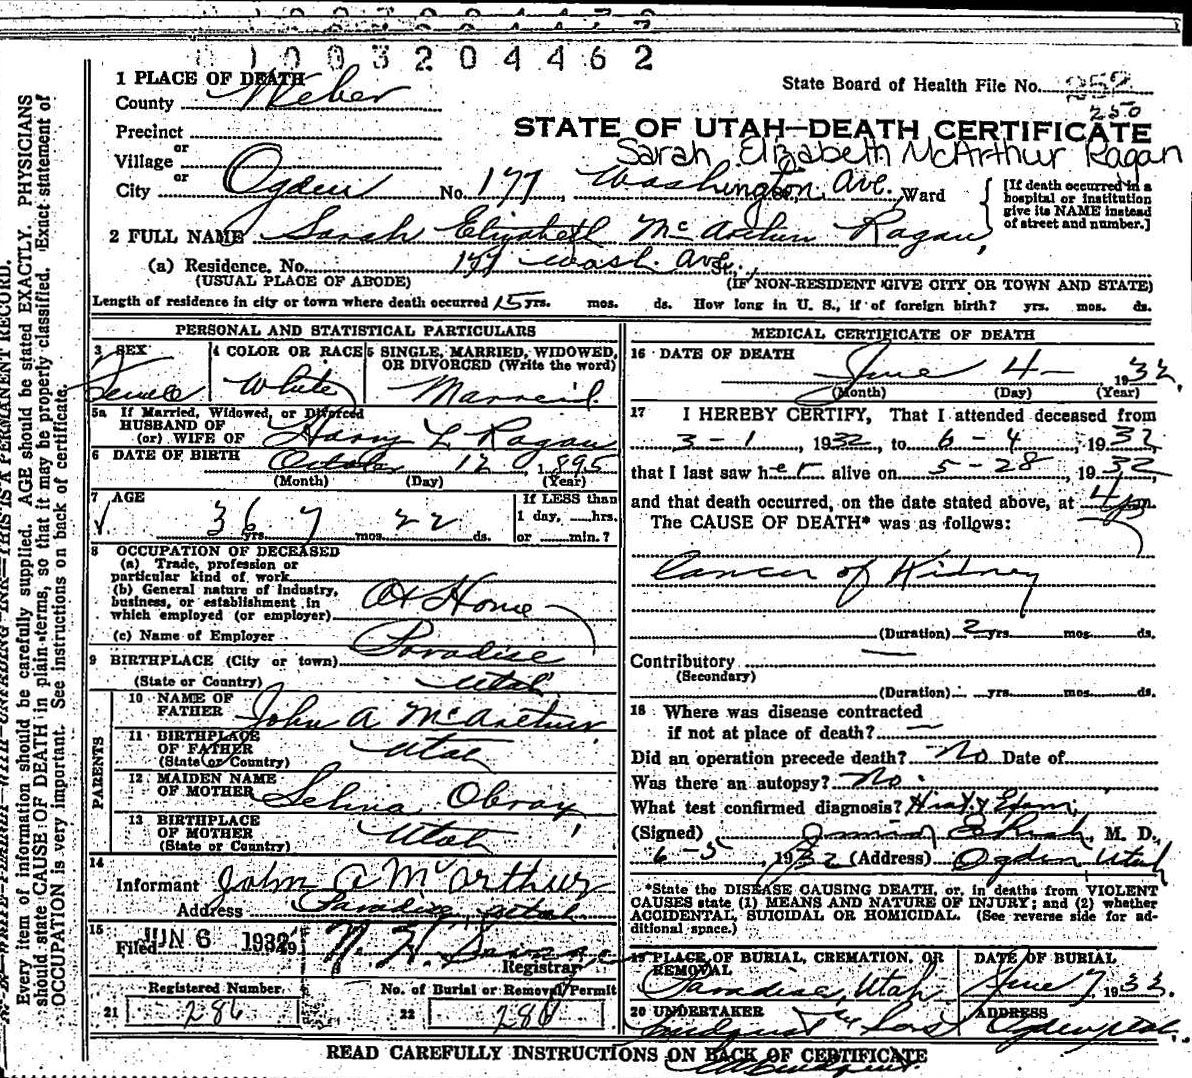 1003204462
1 PLACE OF DEATH
County Weber
State Board of Health File No.
250
Precinct
or
STATE OF UTAH—DEATH CERTIFICATE
Sarah Elizabeth McArthur Ragan
Village
or
City Ogden No. 177, Washington Ave. Ward
[If death occurred in a hospital or institution give its NAME instead of street and number.]
2 FULL NAME Sarah Elizabeth McArthur Ragan,
(a) Residence, No. 177 Wash. Ave. St.,
(USUAL PLACE OF ABODE) (IF NON-RESIDENT GIVE CITY OR TOWN AND STATE)
Length of residence in city or town where death occurred 15 yrs. mos. ds. How long in U. S., if of foreign birth? yrs. mos. ds.
PERSONAL AND STATISTICAL PARTICULARS
3 SEX
4 COLOR OR RACE
5 SINGLE, MARRIED, WIDOWED, OR DIVORCED (Write the word)
Female White Married
5a If Married, Widowed, or Divorced
HUSBAND OF
(or) WIFE OF Harry L Ragan
6 DATE OF BIRTH October 12, 1895
(Month) (Day) (Year)
7 AGE
If LESS than
1 day, hrs.
36 yrs. 7 mos. 22 ds. or min.?
8 OCCUPATION OF DECEASED
(a) Trade, profession or
particular kind of work
(b) General nature of industry,
business, or establishment in
which employed (or employer) At Home
(c) Name of Employer
9 BIRTHPLACE (City or town) Paradise
(State or Country) Utah
PARENTS
10 NAME OF
FATHER John A McArthur
11 BIRTHPLACE
OF FATHER
(State or Country) Utah
12 MAIDEN NAME
OF MOTHER Selina Obray
13 BIRTHPLACE
OF MOTHER
(State or Country) Utah
14
Informant John A McArthur
Address Paradise, Utah
15
Filed JUN 6 1932
Registrar
Registered Number. No. of Burial or Removal Permit
21 286 22 286
MEDICAL CERTIFICATE OF DEATH
16 DATE OF DEATH
June 4 - 1932.
(Month) (Day) (Year)
17 I HEREBY CERTIFY, That I attended deceased from
3-1, 1932, to 6-4, 1932
that I last saw her alive on 5-28, 1932
and that death occurred, on the date stated above, at 4 pm.
The CAUSE OF DEATH* was as follows:
Cancer of Kidney
(Duration) 2 yrs. mos. ds.
Contributory
(Secondary)
(Duration) yrs. mos. ds.
18 Where was disease contracted
if not at place of death?
Did an operation precede death? No Date of
Was there an autopsy? no.
What test confirmed diagnosis?
(Signed) M. D.
6-5, 1932 (Address) Ogden Utah
*State the DISEASE CAUSING DEATH, or, in deaths from VIOLENT
CAUSES state (1) MEANS AND NATURE OF INJURY; and (2) whether
ACCIDENTAL, SUICIDAL OR HOMICIDAL. (See reverse side for ad-
ditional space.)
19 PLACE OF BURIAL, CREMATION, OR
REMOVAL
Paradise, Utah
DATE OF BURIAL
June 7, 1932.
20 UNDERTAKER
Lindquist & Sons
ADDRESS
Ogden, Utah.
READ CAREFULLY INSTRUCTIONS ON BACK OF CERTIFICATE
THIS IS A PERMANENT RECORD.
Every item of information should be carefully supplied. AGE should be stated EXACTLY. PHYSICIANS
should state CAUSE OF DEATH in plain terms, so that it may be properly classified. Exact statement of
OCCUPATION is very important. See instructions on back of certificate.